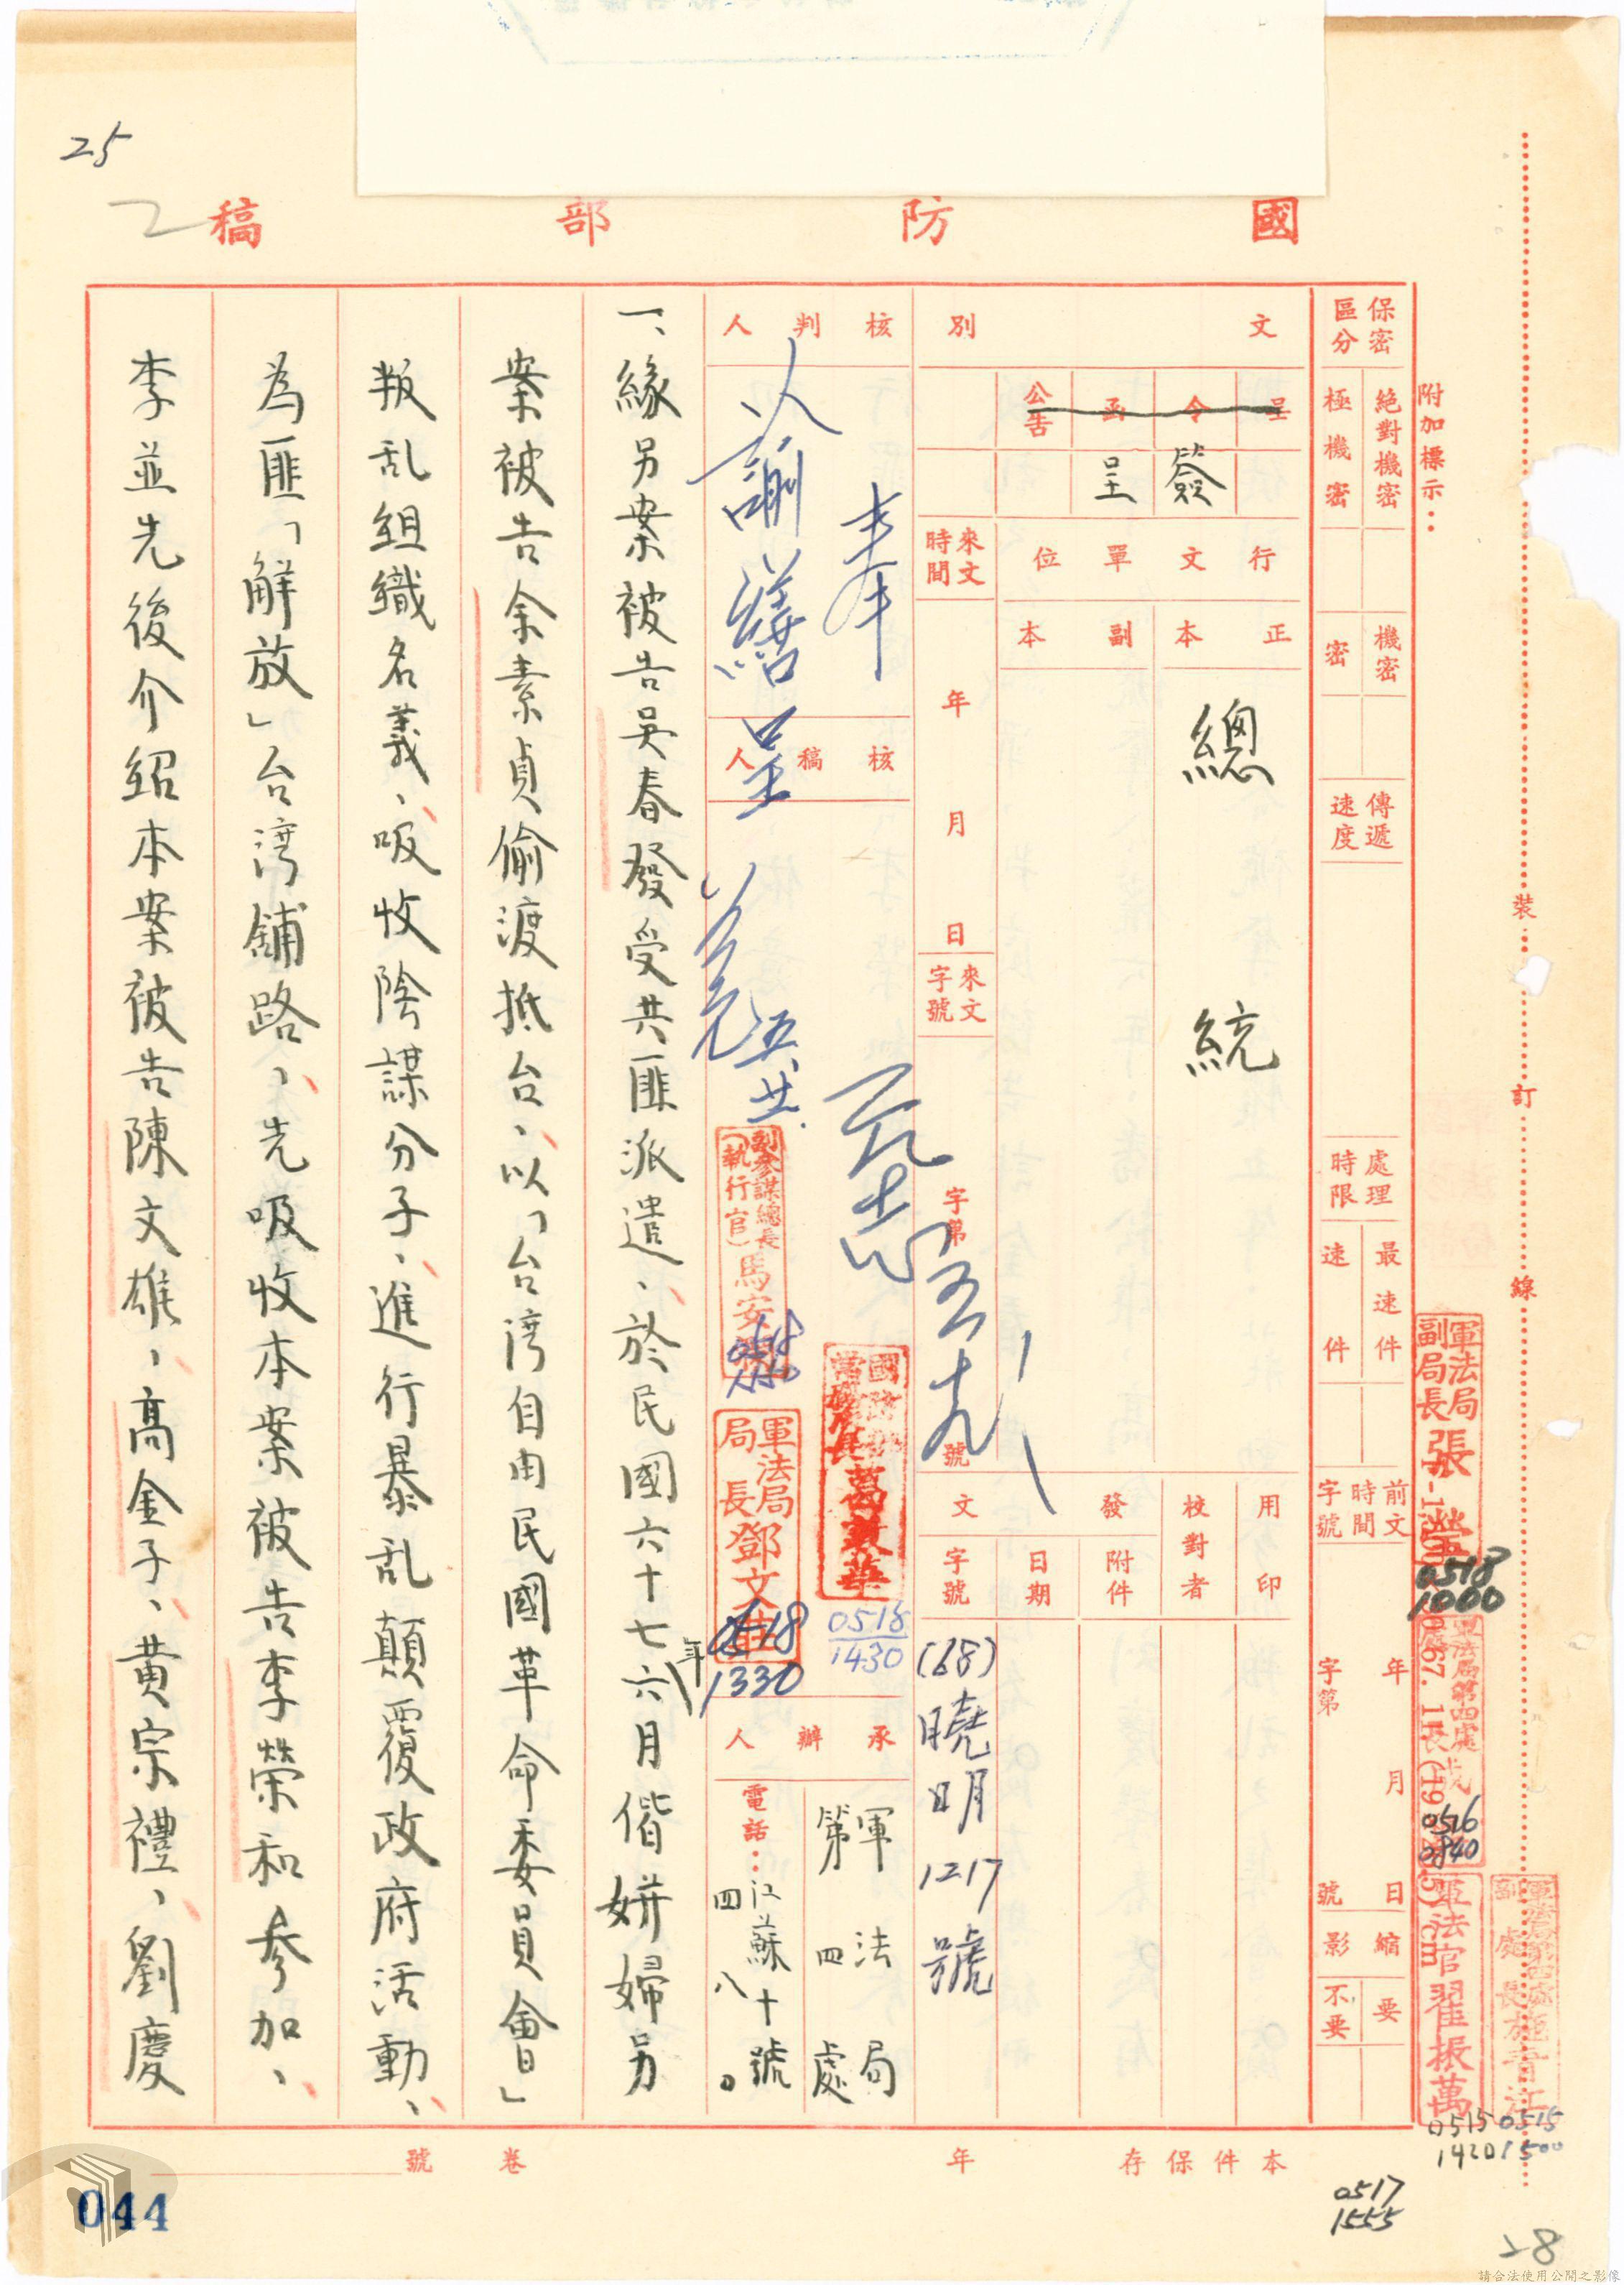 25
國防部稿
附加標示：
裝訂線
保密區分
絕對機密
極機密
機密
密
傳遞速度
處理時限
最速件
速件
前文時間字號
年月日
字第號
縮影
要
不要
文別
呈
令
函
公告
簽
呈
行文單位
正本
副本
總統
來文時間
年月日
來文字號
字第號
用印
校對者
發文
附件
日期
字號
(68)曉明1217號
核判人
奉
諭繕呈
核稿人
副參謀總長(執行官)馬安瀾
軍法局局長鄧文
0518
1330
0518
1430
承辦人
軍法局
第四處
電話：江蘇十號
四八。
軍法局副局長張
0518
1000
軍法局第四處
0516
0840
軍法官翟振萬
0515
1420
0515
1500
一、緣另案被告吳春發受共匪派遣、於民國六十七年六月偕姘婦另
案被告余素貞偷渡抵台、以「台湾自由民國革命委員會」
叛乱組織名義、吸收陰謀分子、進行暴乱顛覆政府活動、
為匪「解放」台湾鋪路、先吸收本案被告李榮和參加、
李並先後介紹本案被告陳文雄、高金子、黄宗禮、劉慶
本件保存年
卷號
044
0517
1555
28
請合法使用公開之影像